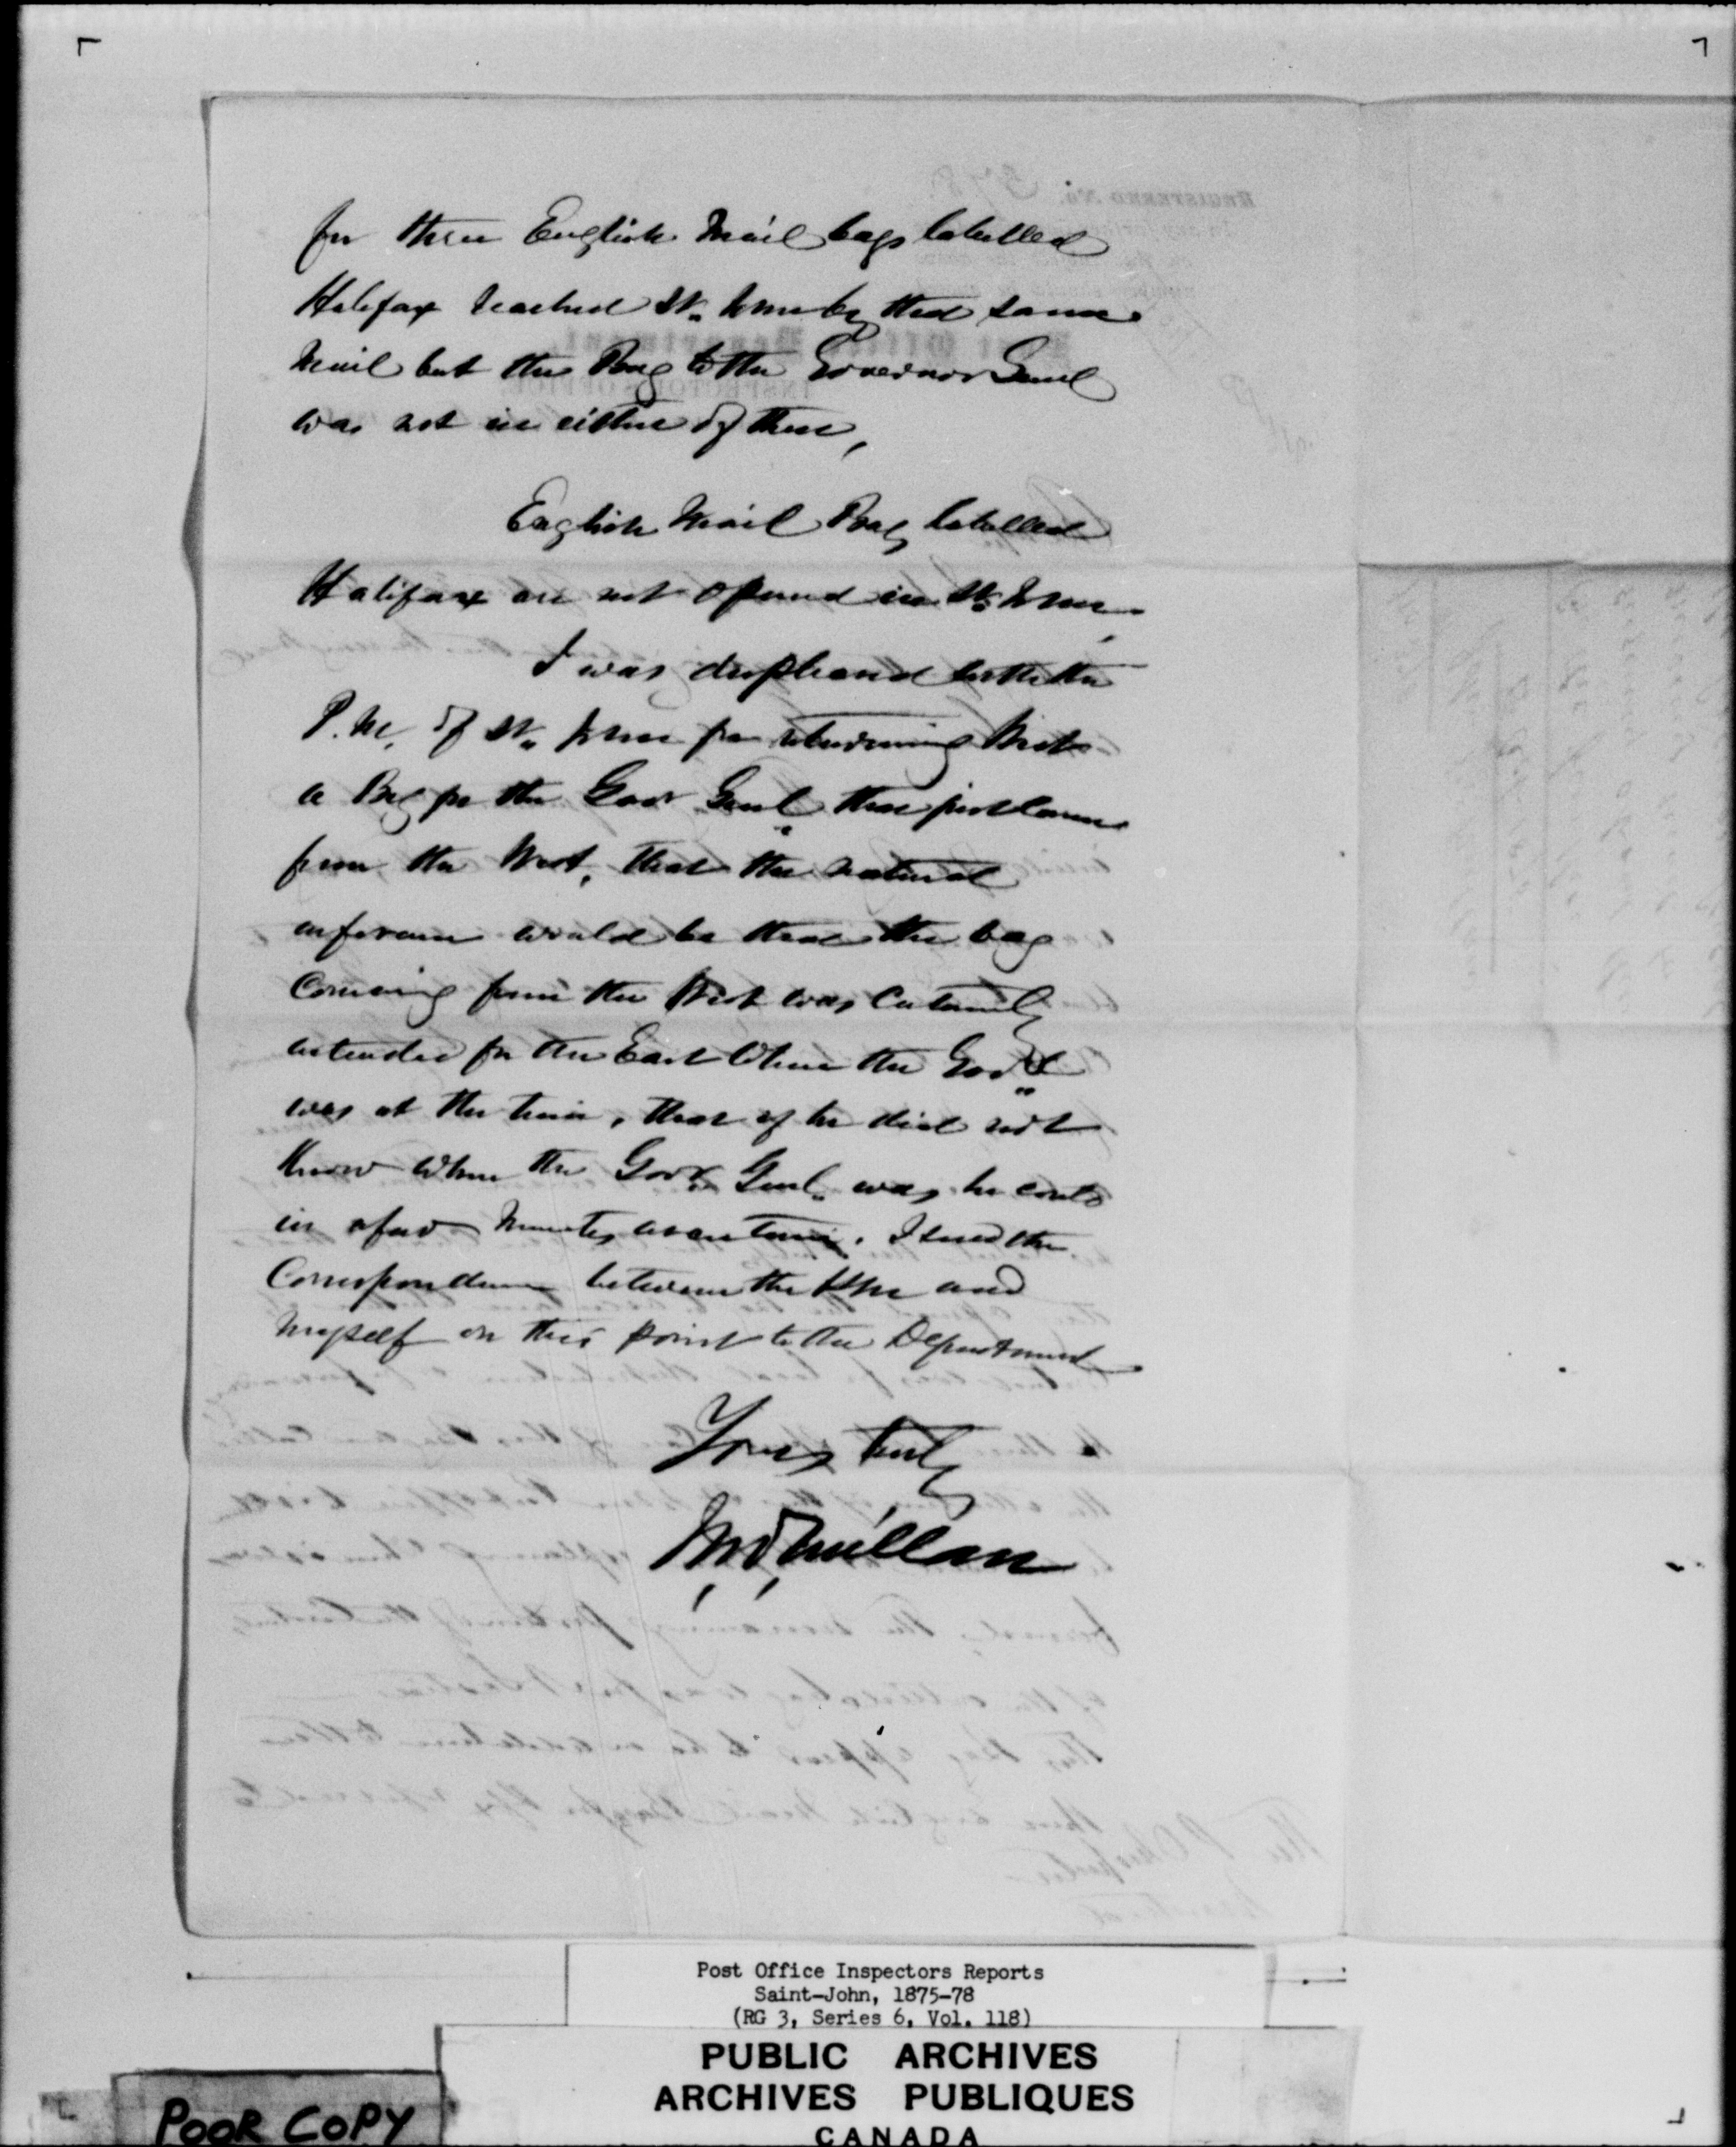 for three English Mail bags labelled
Halifax reached St. John by the same
Mail but the Bag to the Governor Genl
was not in either of them,
English Mail Bags labelled
Halifax are not opened in St. John
I was displeased with the
P.M. of St. John for returning West
a Bag for the Govr Genl that just came
from the West, that the natural
inference would be that the bag
Coming from the West was Certainly
intended for the East where the
was at the time, that if he did not
Know where the Govr Genl. was he could
in a few Minutes ascertain. I send the
Correspondence between the PM and
myself on this point to the Department
Yours truly
J McMillan
Post Office Inspectors Reports
Saint-John, 1875-78
(RG 3, Series 6, Vol. 118)
PUBLIC ARCHIVES
ARCHIVES PUBLIQUES
CANADA
POOR COPY